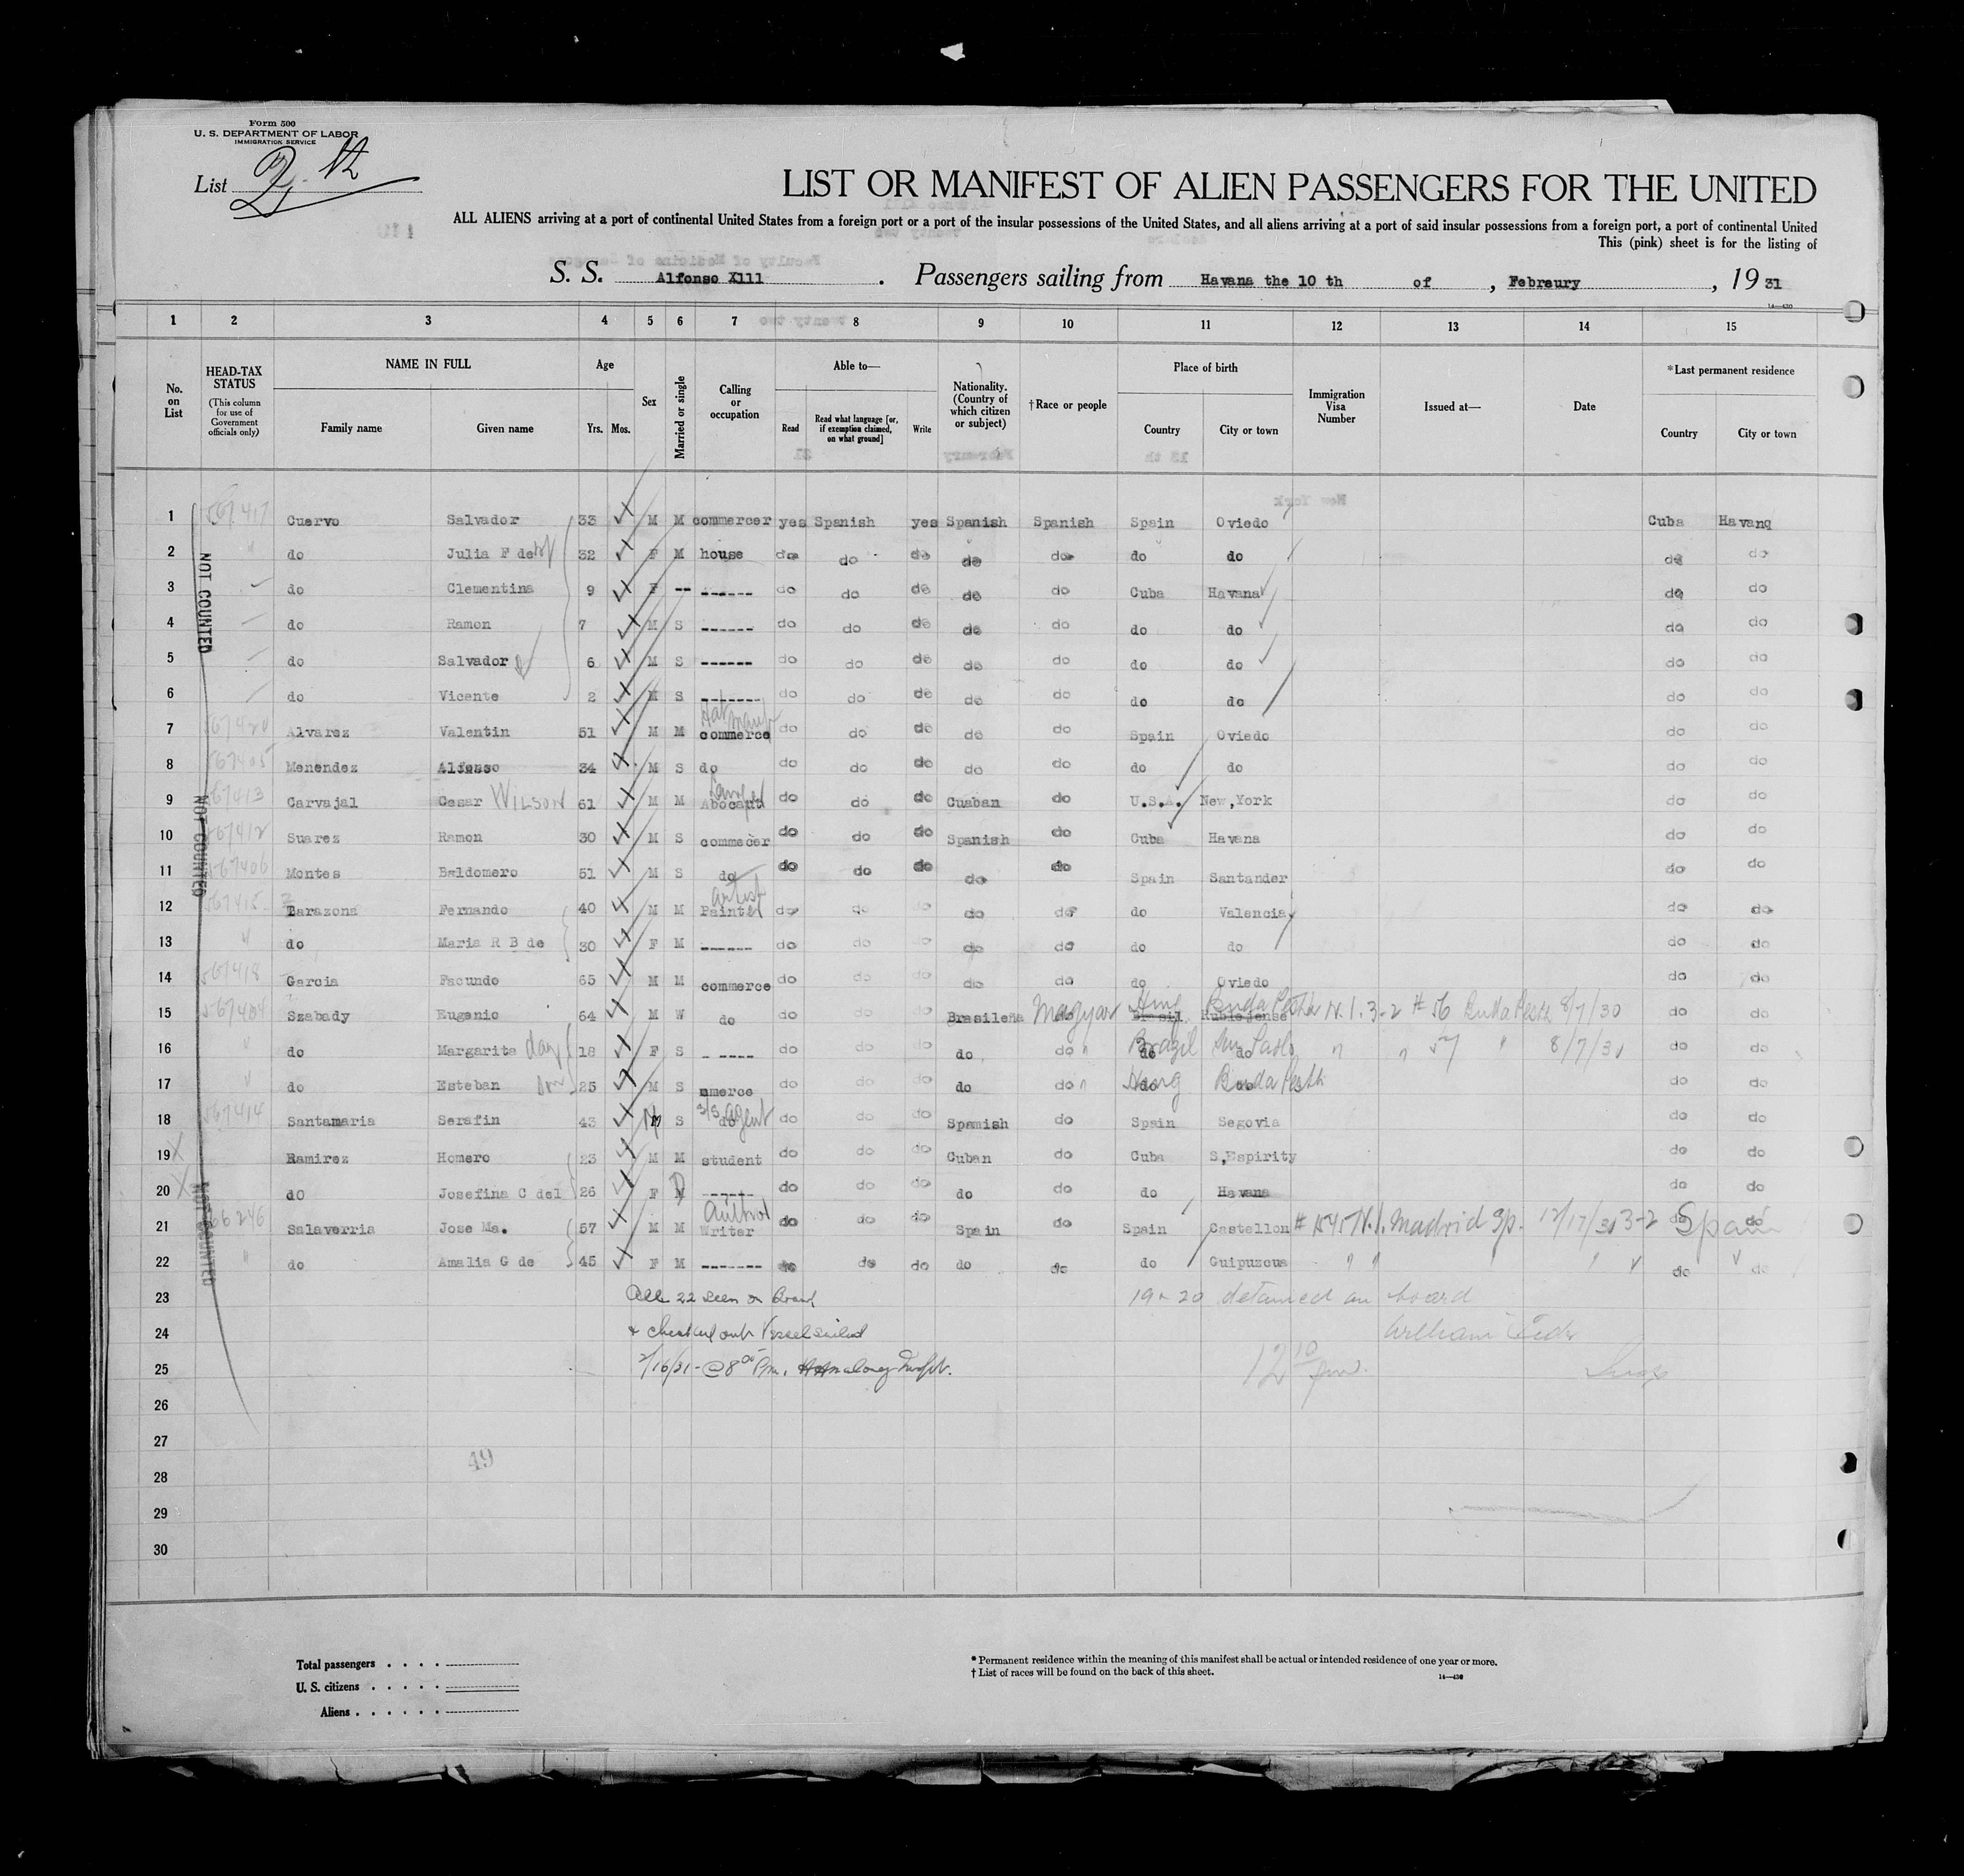 Form 500
U. S. DEPARTMENT OF LABOR
IMMIGRATION SERVICE
List
LIST OR MANIFEST OF ALIEN PASSENGERS FOR THE UNITED
ALL ALIENS arriving at a port of continental United States from a foreign port or a port of the insular possessions of the United States, and all aliens arriving at a port of said insular possessions from a foreign port, a port of continental United
This (pink) sheet is for the listing of
S. S. Alfonso Xlll . Passengers sailing from Havana the 10 th of , Febreury , 19 31
14—430
1 2 3 4 5 6 7 8 9 10 11 12 13 14 15
No. on List
HEAD-TAX STATUS
(This column for use of Government officials only)
NAME IN FULL
Family name Given name
Age
Yrs. Mos.
Sex
Married or single
Calling or occupation
Able to—
Read
Read what language [or, if exemption claimed, on what ground]
Write
Nationality. (Country of which citizen or subject)
†Race or people
Place of birth
Country City or town
Immigration Visa Number
Issued at—
Date
*Last permanent residence
Country City or town
1 567417 Cuervo Salvador 33 M M commercer yes Spanish yes Spanish Spanish Spain Oviedo Cuba Havanq
2 do Julia F de 32 F M house do do do do do do do do do
3 do Clementina 9 F -- ------ do do do do do Cuba Havana do do
4 do Ramon 7 M S ------ do do do do do do do do do
5 do Salvador 6 M S ------ do do do do do do do do do
6 do Vicente 2 M S ------- do do do do do do do do do
7 567420 Alvarez Valentin 51 M M Hat manuf commerce do do do do do Spain Oviedo do do
8 567405 Menendez Alfonso 34 M S do do do do do do do do do do
9 567413 Carvajal Cesar WILSON 61 M M Lawyer Abocado do do do Cuaban do U.S.A. New,York do do
10 567412 Suarez Ramon 30 M S commecer do do do Spanish do Cuba Havana do do
11 567406 Montes Baldomero 51 M S do do do do do do Spain Santander do do
12 567415 Tarazona Fernando 40 M M artist Painter do do do do do do Valencia do do
13 do Maria R B de 30 F M ------ do do do do do do do do do
14 567418 Garcia Facundo 65 M M commerce do do do do do do Oviedo do do
15 567404 Szabady Eugenio 64 M W do do do do Brasileña Magyar do Hung Brasil Buda Pesth N.I. 3-2 # 56 Buda Pesth 8/7/30 do do
16 do Margarita 18 F S - ---- do do do do do " Brazil do Sao Paolo do " " 57 " 8/7/30 do do
17 do Esteban 25 M S mmerce do do do do do " Hung do Buda Pesth do do
18 567414 Santamaria Serafin 43 M S S/S agent do do do do Spanish do Spain Segovia do do
19 X Ramirez Homero 23 M M student do do do Cuban do Cuba S,Espirity do do
20 X dO Josefina C del 26 F M D ----- do do do do do do Havana do do
21 66246 Salaverria Jose Ma. 57 M M Author Writer do do do Spain do Spain Castellon # 1545 N.I. Madrid Sp. 12/17/30 3-2 Spain do do
22 " do Amalia G de 45 F M ------- do do do do do do Guipuzcua " " " " do do
23 All 22 seen on Board 19 & 20 detained on board
24 & checked out Vessel sailed William
25 2/16/31 - @ 8 00 Pm. 12 10 pm. Insp
26
27
28
29
30
49
NOT COUNTED
NOT COUNTED
NOT COUNTED
Total passengers . . . .
U. S. citizens . . . . .
Aliens . . . . . .
* Permanent residence within the meaning of this manifest shall be actual or intended residence of one year or more.
† List of races will be found on the back of this sheet.
14—430